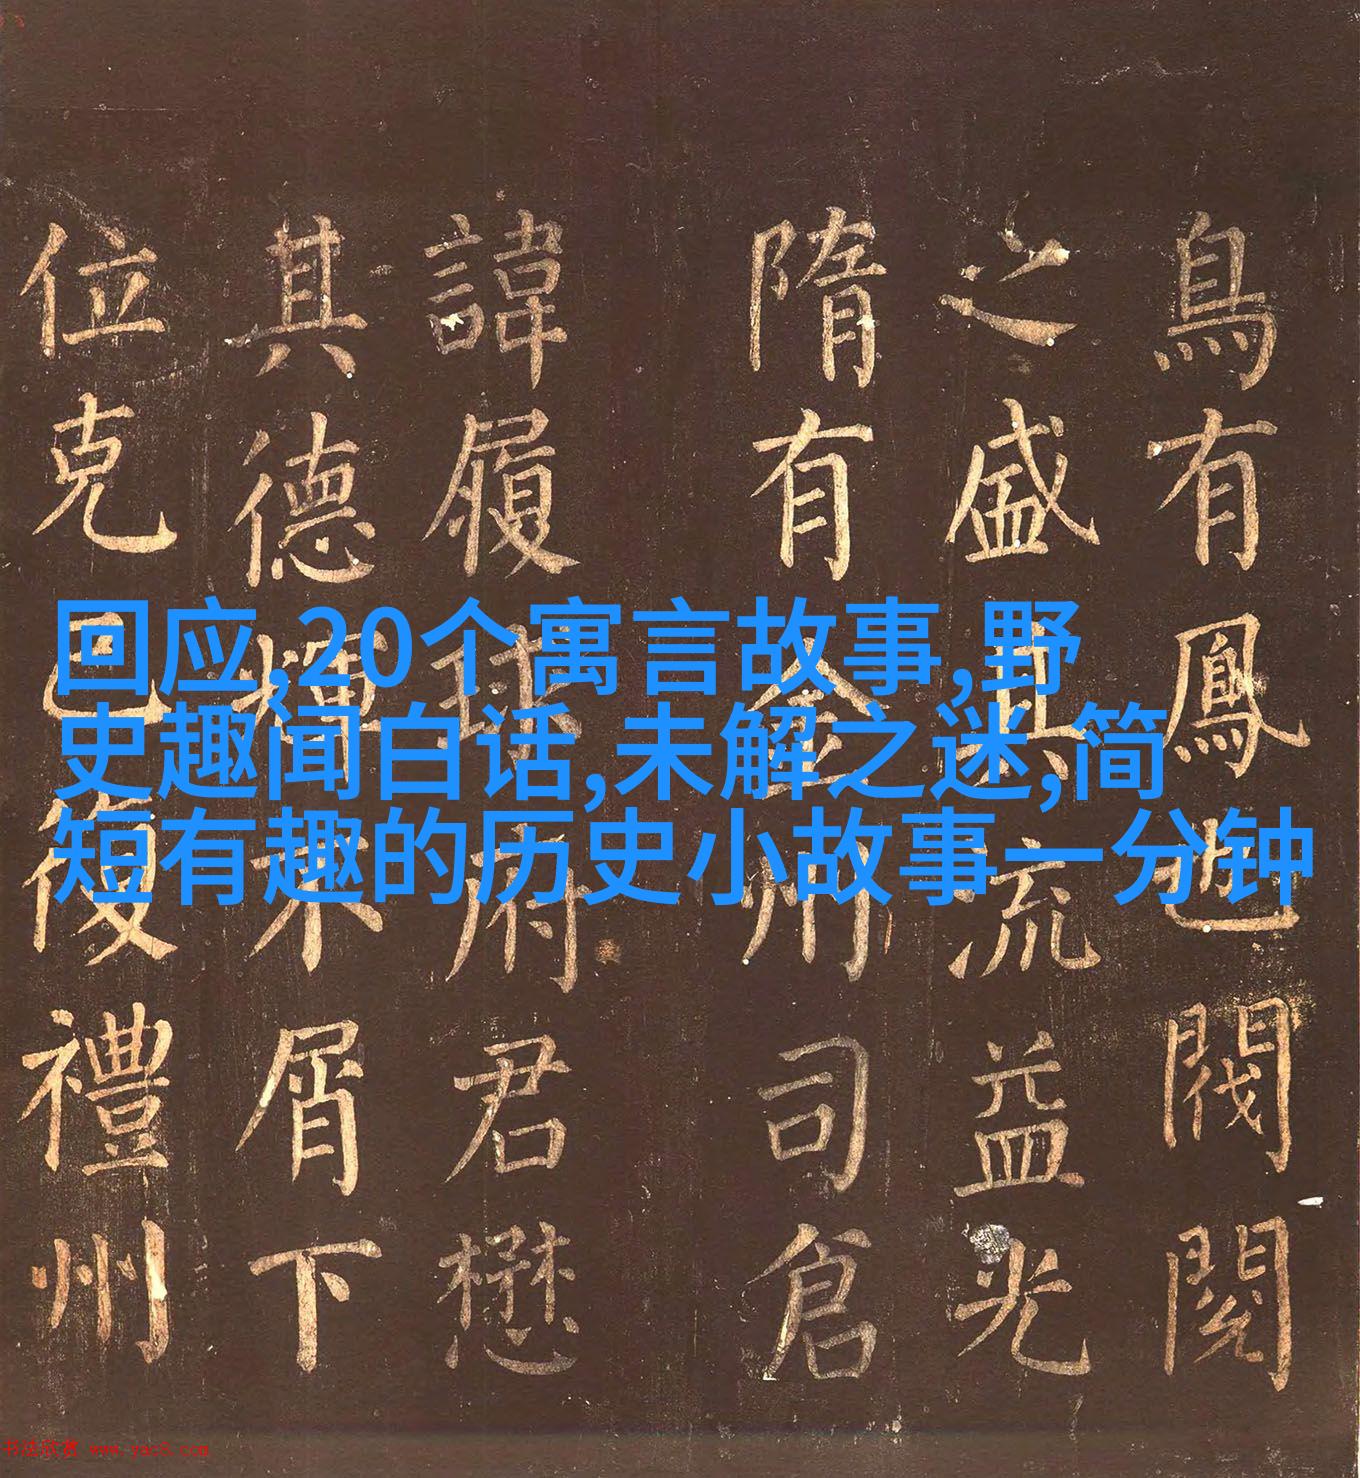 回应,20个寓言故事,野
史趣闻白话,未解之迷,简
短有趣的历史小故事一分钟
鳥有鳳也閥閱
之盛其流益光
隋有金州司倉
諱履球府君懋
其德輝不屑下
位克己復禮州
书法欣赏 www.yac8.com